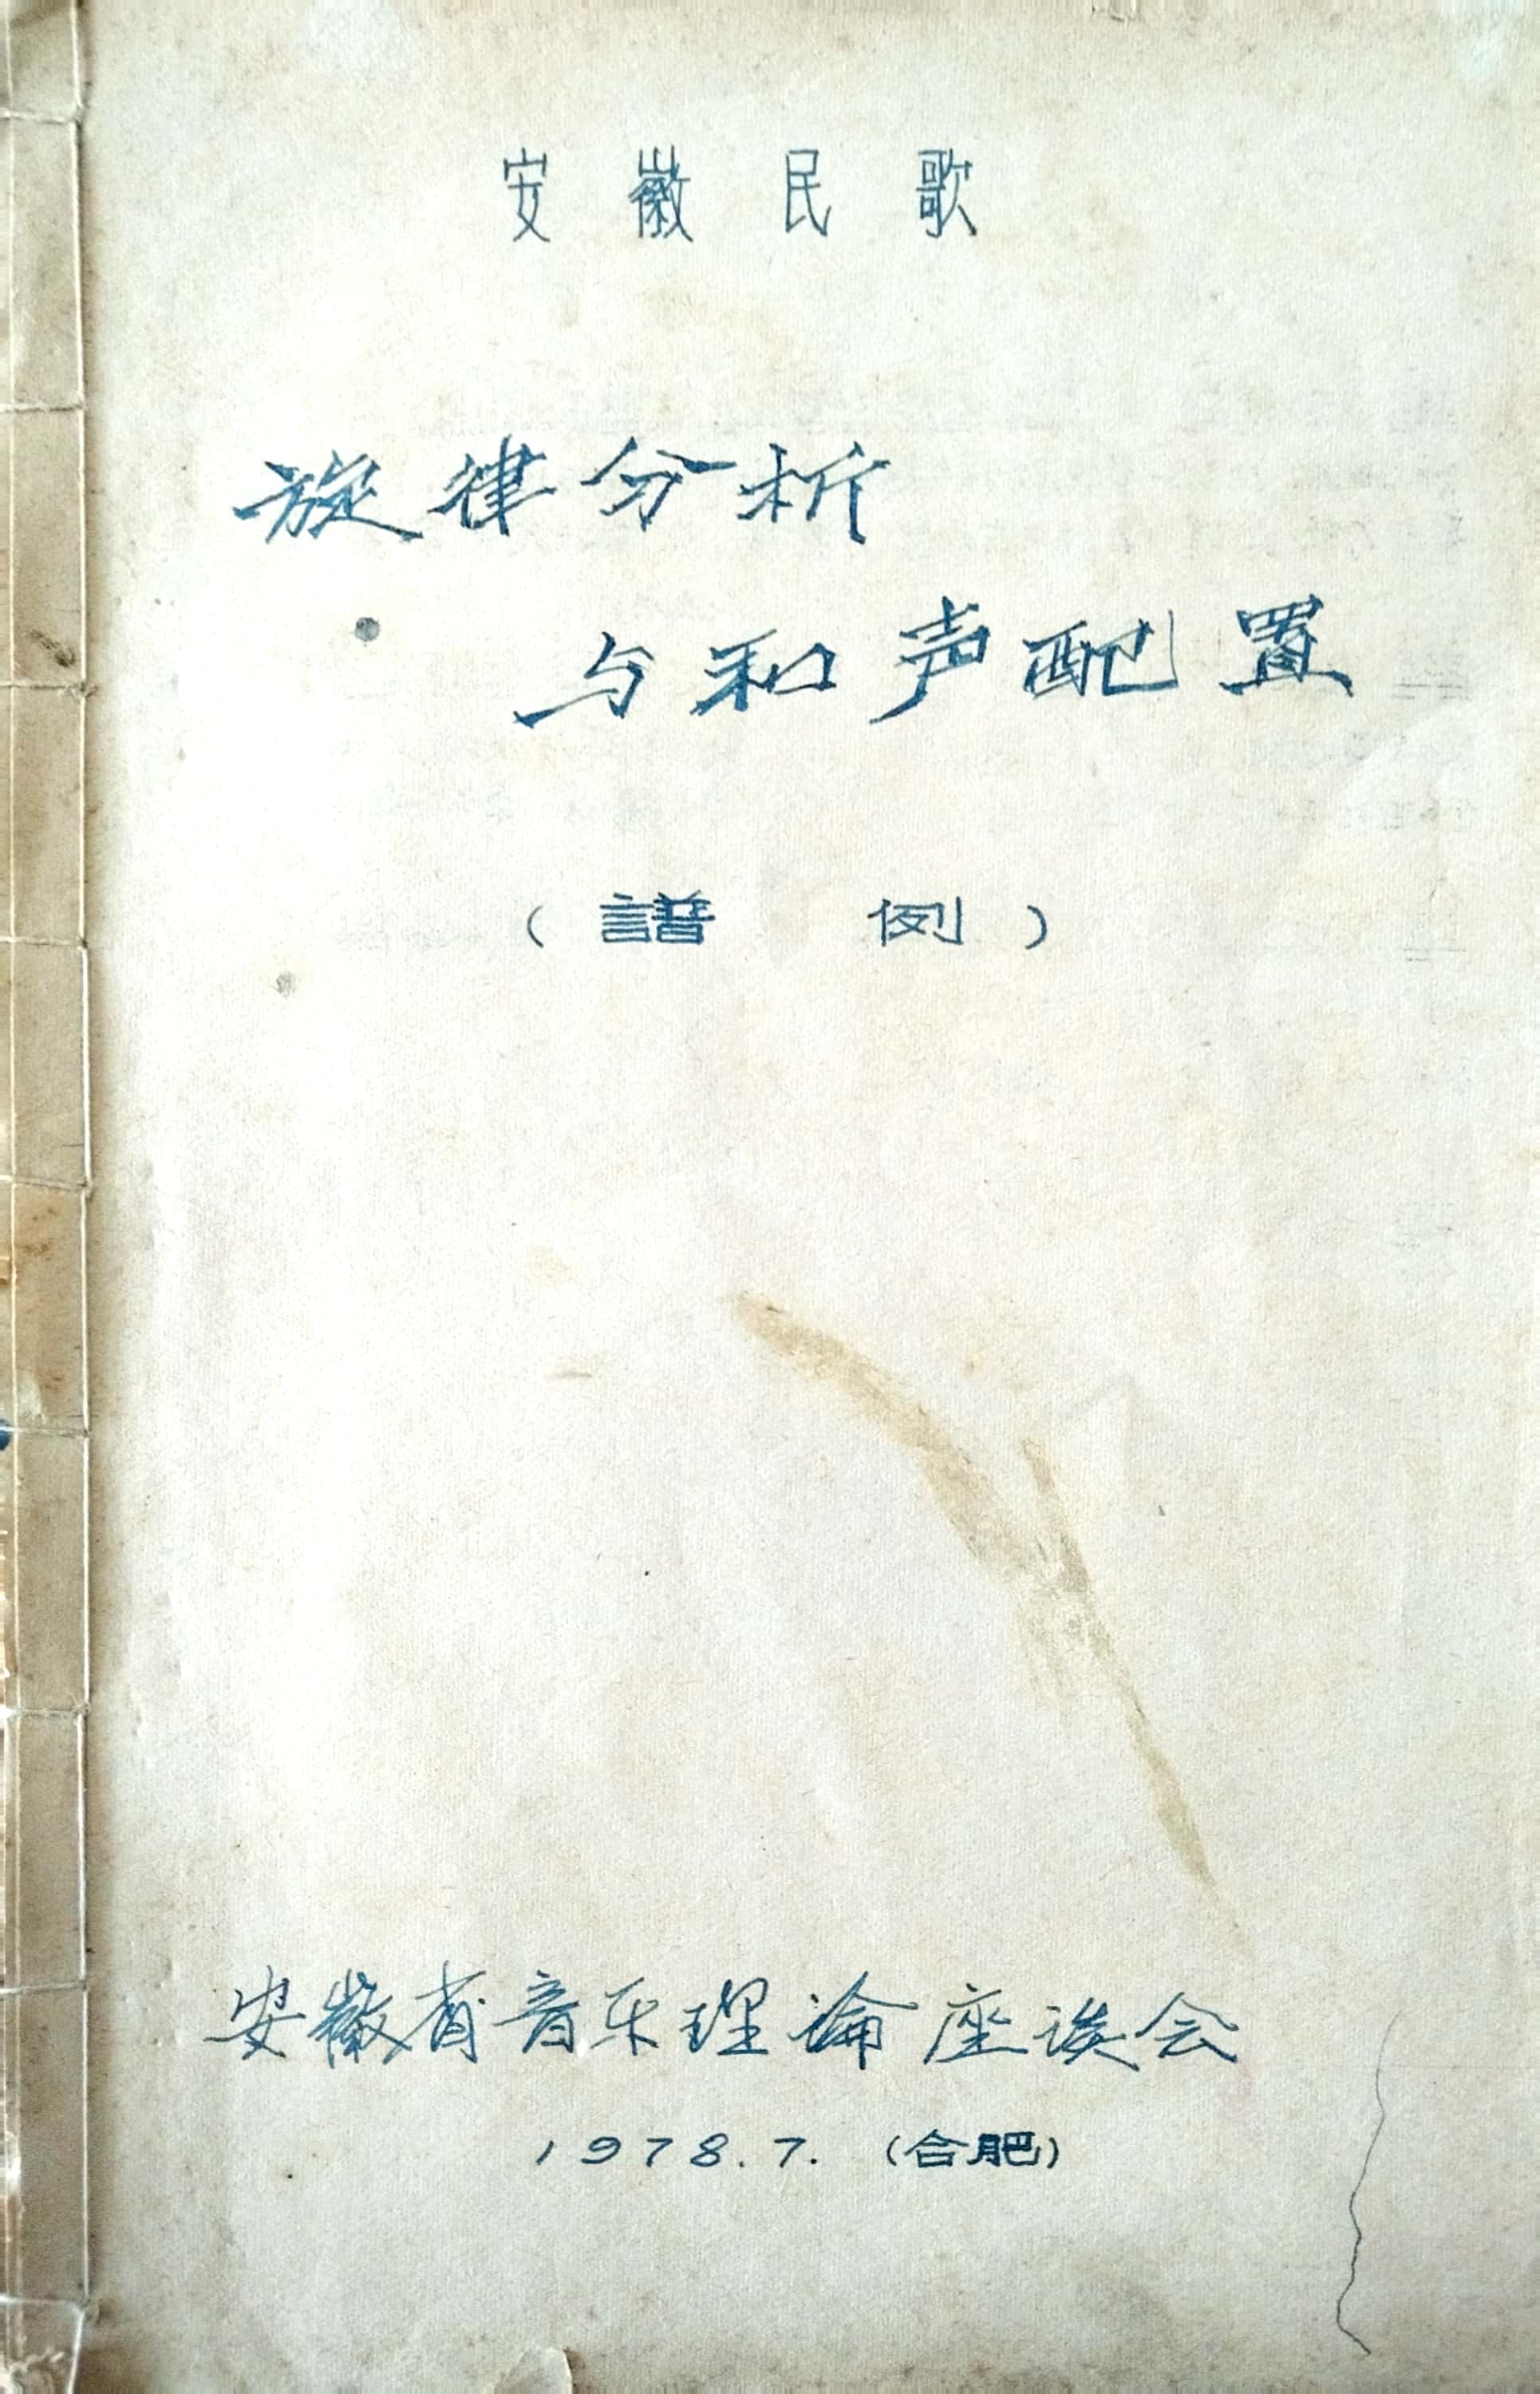 安徽民歌
旋律分析
与和声配置
（譜例）
安徽省音乐理論座谈会
1978.7.（合肥）